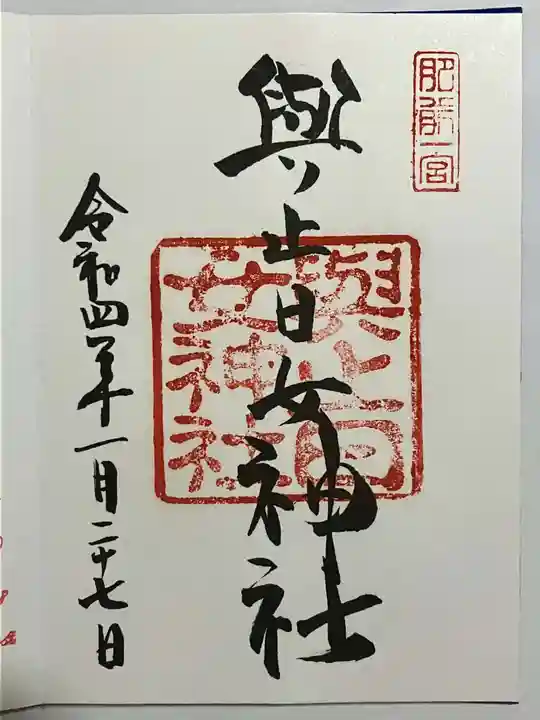 肥前一宮
與止日女神社
與止日
女神社
令和四年十一月二十七日